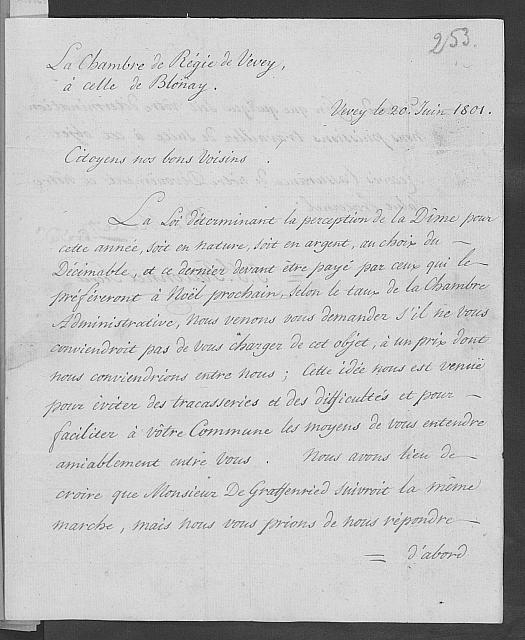 253.
La Chambre de Régie de Vevey,
à celle de Blonay.
Vevey le 20.e Juin 1801.
Citoyens nos bons Voisins.
La Loi déterminant la perception de la Dîme pour
cette année, soit en nature, soit en argent, au choix du
Décimable, et ce dernier devant être payé par ceux qui le
préféreront à Noël prochain, selon le taux de la Chambre
Administrative, Nous venons vous demander s'il ne vous
conviendroit pas de vous charger de cet objet, à un prix dont
nous conviendrions entre nous; Cette idée nous est venuë
pour éviter des tracasseries et des difficultés et pour
faciliter à vôtre Commune les moyens de vous entendre
amiablement entre vous. Nous avons lieu de
croire que Monsieur De Graffenried suivroit la même
marche, mais nous vous prions de nous répondre
= d'abord